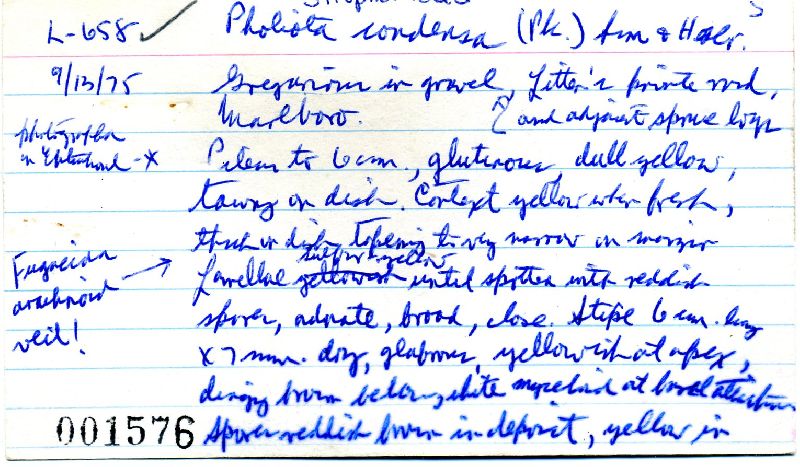 L-658 ✓ Pholiota condensa (Pk.) Am & Hesler.
9/13/75 Gregarious in gravel, Litter's private road,
Marlboro. and adjacent spruce logs
photographed
on Ektachrome - X
Pileus to 6 cm., glutinous, dull yellow,
tawny on disk. Context yellow when fresh,
thick on disk, tapering to very narrow on margin
Fugacious
arachnoid
veil!
sulfur yellow
Lamellae yellowish until spotted with reddish
spores, adnate, broad, close. Stipe 6 cm. long
x 7 mm. dry, glabrous, yellowish at apex,
dingy brown below, white mycelioid at basal attachment
001576 Spores reddish brown in deposit, yellow in